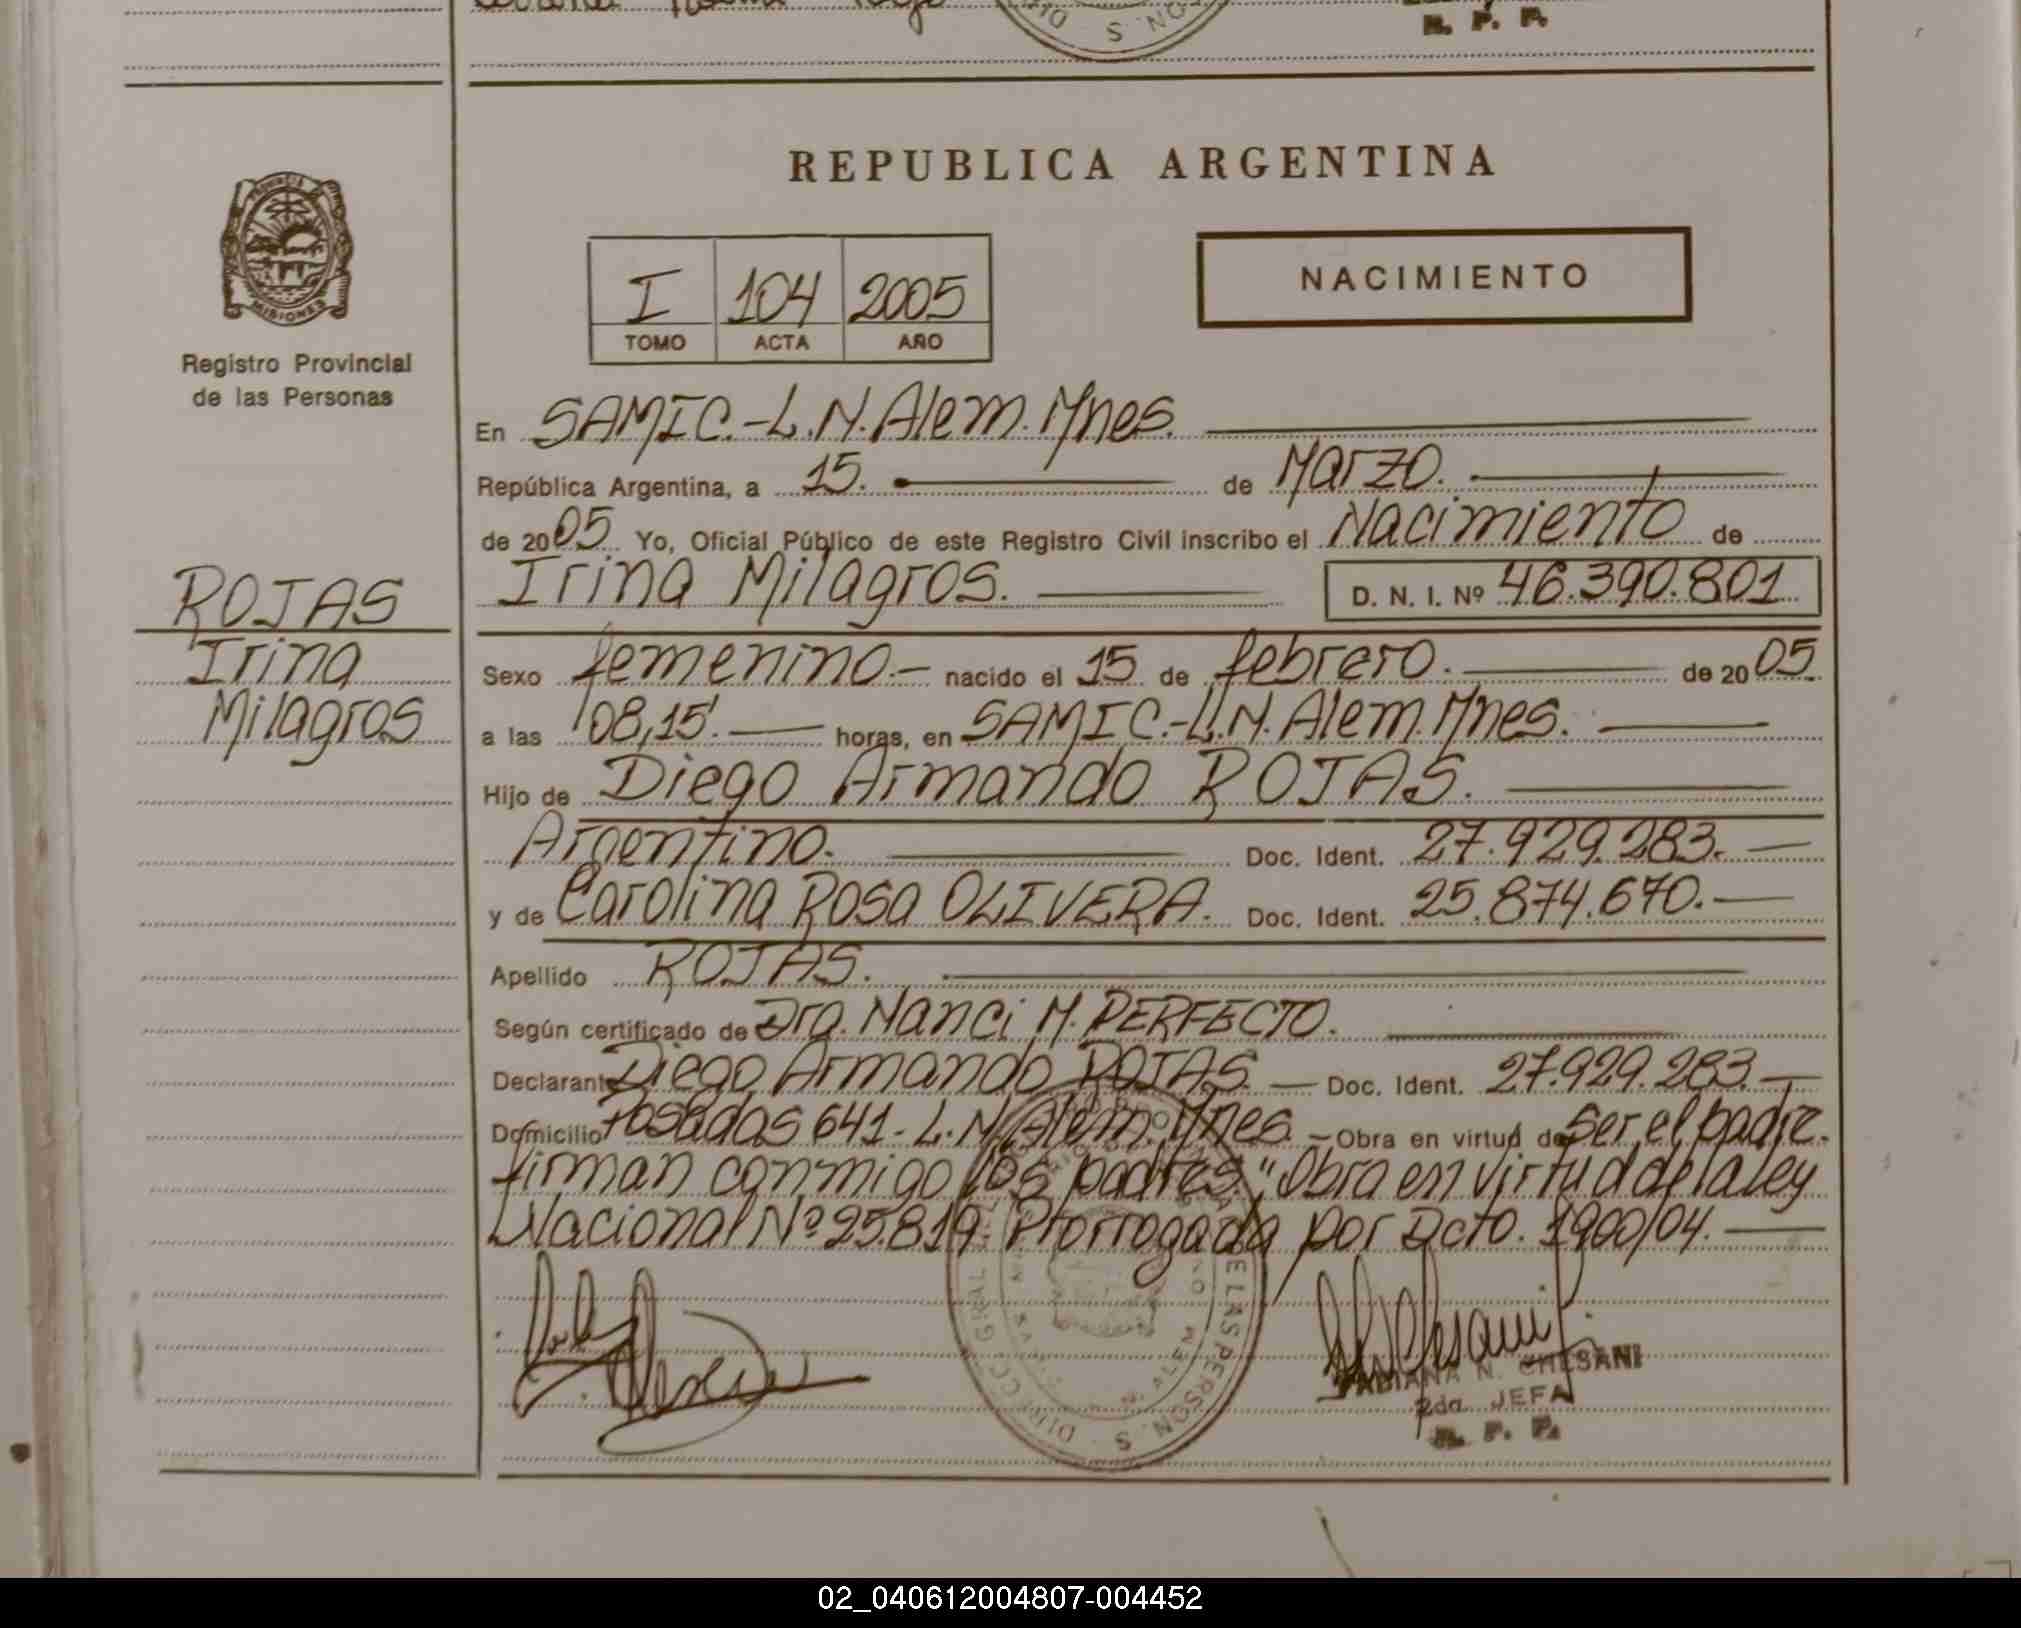 R. P. P.
REPUBLICA ARGENTINA
PROVINCIA
MISIONES
Registro Provincial
de las Personas
I 104 2005
TOMO ACTA AÑO
NACIMIENTO
En SAMIC.-L.N.Alem.Mnes.
República Argentina, a 15. de Marzo.
de 2005 Yo, Oficial Público de este Registro Civil inscribo el Nacimiento de
Irina Milagros. D. N. I. Nº 46.390.801
ROJAS
Irina
Milagros
Sexo femenino.- nacido el 15 de febrero. de 2005.
a las 08,15'. horas, en SAMIC.-L.N.Alem.Mnes.
Hijo de Diego Armando ROJAS.
Argentino. Doc. Ident. 27.929.283.
y de Carolina Rosa OLIVERA. Doc. Ident. 25.874.670.
Apellido ROJAS.
Según certificado de Dra. Nanci M. PERFECTO.
Declarante Diego Armando ROJAS. Doc. Ident. 27.929.283.
Domicilio Posadas 641-L.N.Alem.Mnes. Obra en virtud de Ser el padre.
firman conmigo los padres. "Obra en virtud de la ley
Nacional Nº 25.819. Prorrogada por Dcto. 1900/04.
FABIANA N. CHESANI
2da. JEFA
R. P. P.
02_040612004807-004452